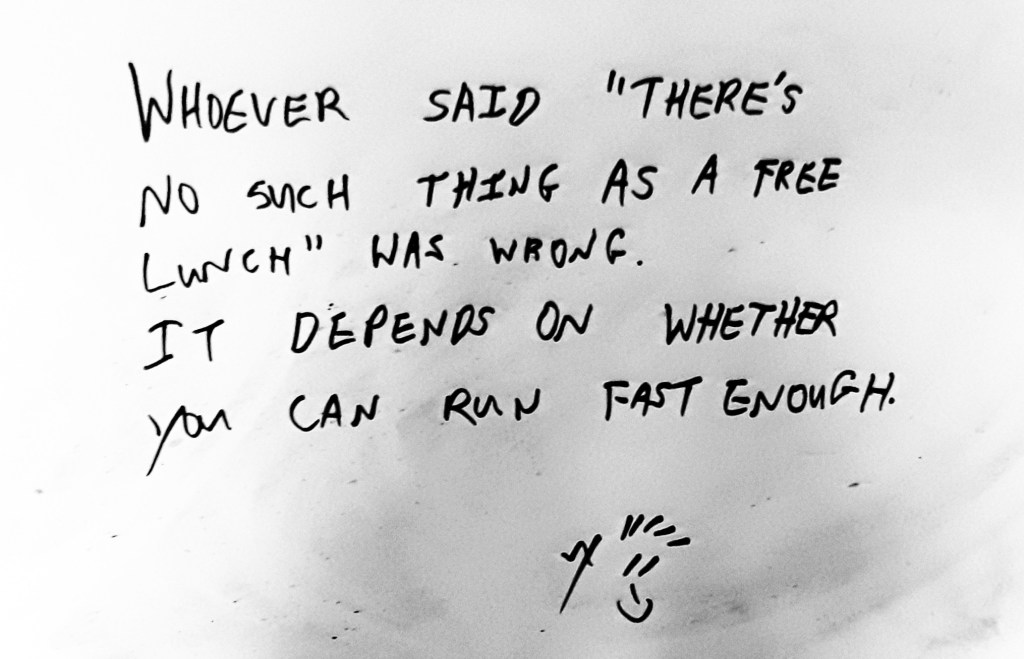 WHOEVER SAID "THERE'S
NO SUCH THING AS A FREE
LUNCH" WAS WRONG.
IT DEPENDS ON WHETHER
YOU CAN RUN FAST ENOUGH.